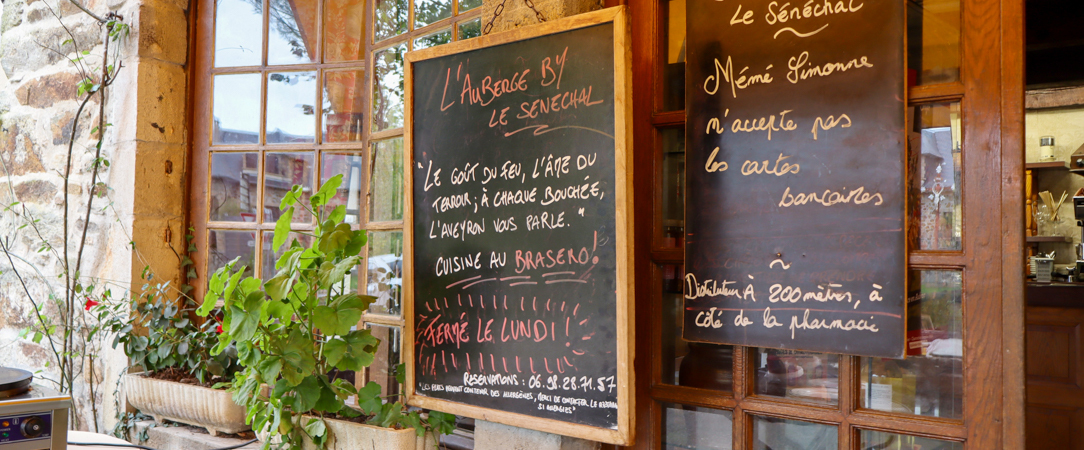 L'AUBERGE BY
LE SENECHAL
"LE GOÛT DU FEU, L'ÂME DU
TERROIR; À CHAQUE BOUCHÉE,
L'AVEYRON VOUS PARLE."
CUISINE AU BRASERO!
FERMÉ LE LUNDI!
RESERVATIONS: 06.98.28.71.57
*LES PLATS PEUVENT CONTENIR DES ALLERGÈNES, MERCI DE CONTACTER LE
SI ALLERGIES"
Le Sénéchal
Mémé Simonne
n'accepte pas
les cartes
bancaires
Distributeur À 200 mètres, à
côté de la pharmacie